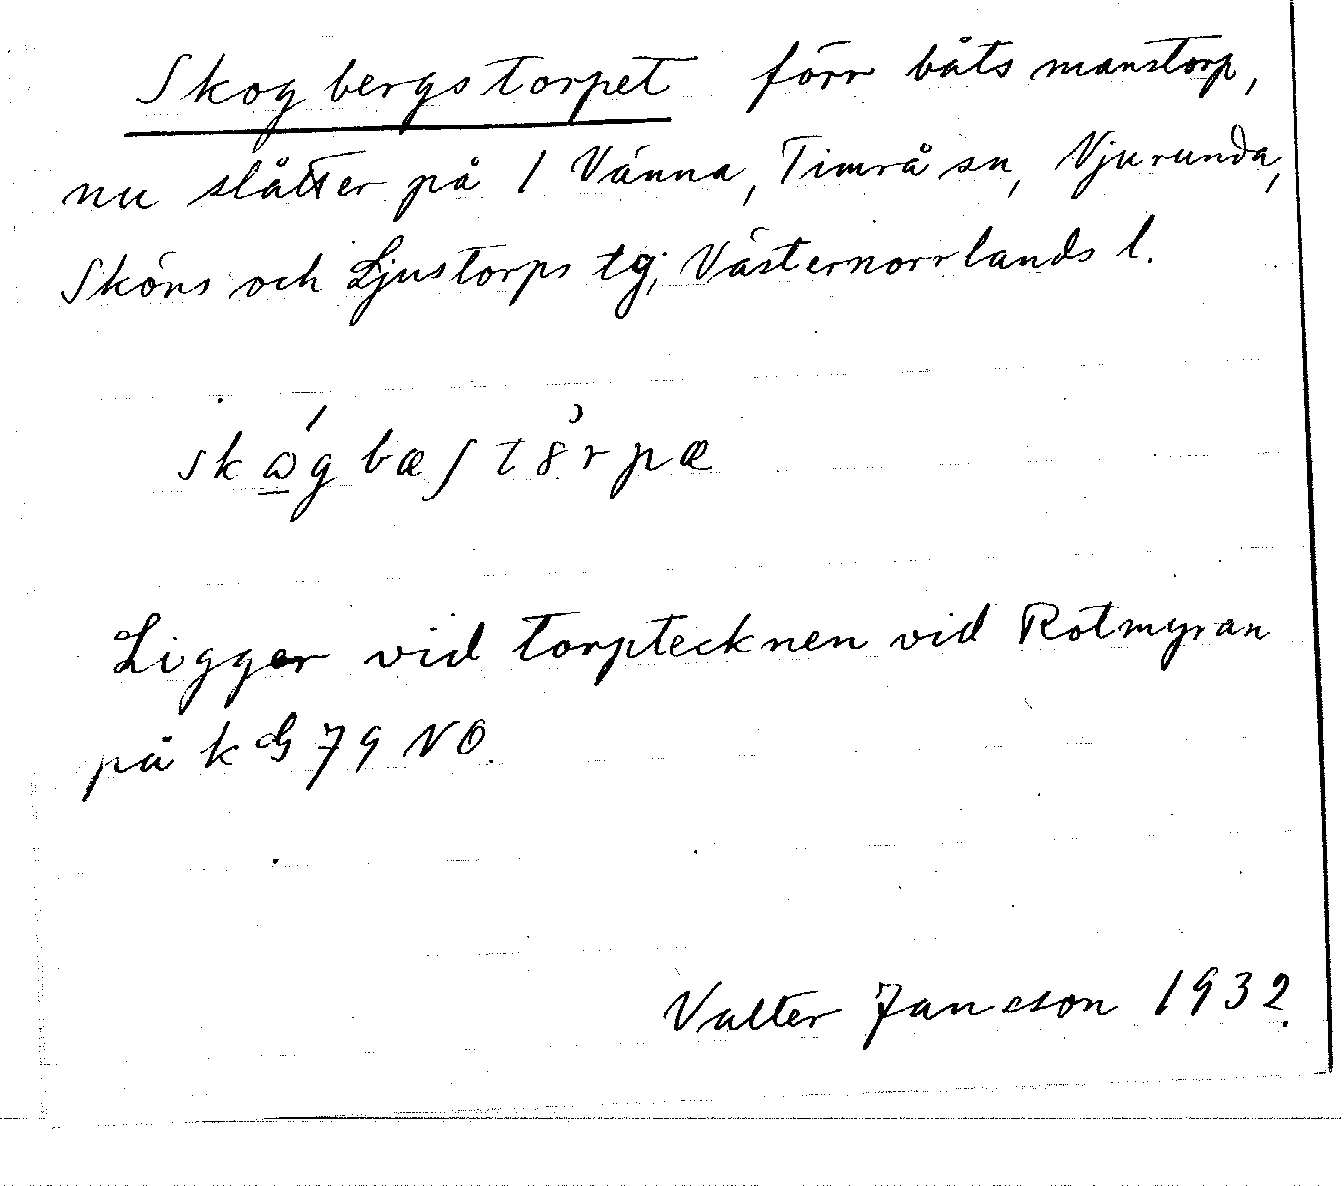 Skogbergstorpet förr båtsmanstorp,
nu slåtter på 1 Vänna, Timrå sn, Njurunda,
Sköns och Ljustorps tg, Västernorrlands l.
skógbæʃt8rpæ
Ligger vid torptecknen vid Rotmyran
på k G 79 NO.
Valter Jansson 1932.